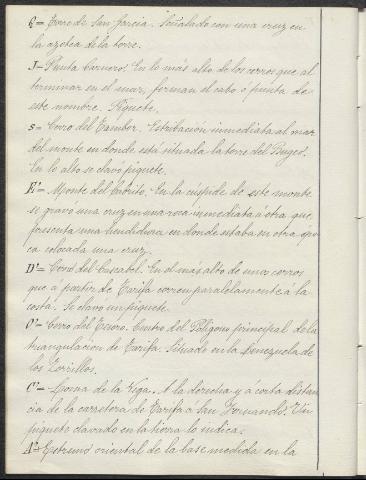 Q = Torre de San García. Señalado con una cruz en
la azotea de la torre.
J = Punta Carnero. En lo más alto de los cerros que al
terminar en el mar, forman el cabo ó punta de
este nombre. Piquete.
S = Cerro del Tambor. Estribación inmediata al mar
del monte en donde está situada la torre del
En lo alto se clavó piquete.
E' = Monte del Cabrito. En la cúspide de este monte
se gravó una cruz en una roca inmediata á otra que
presenta una hendidura en donde estaba en otra épo
ca colocada una cruz.
D' = Cerro del Cascabel. En el más alto de unos cerros
que a partir de Tarifa corren paralelamente á la
costa. Se clavó un piquete.
O' = Cerro del Tesoro. Centro del Polígono principal de la
triangulación de Tarifa. Situado en la
los Zorrillos.
C' = Loma de la Vega. A la derecha y á corta distan
cia de la carretera de Tarifa á San Fernando. Un
piquete clavado en la tierra lo indica.
A' = Extremo oriental de la base medida en la